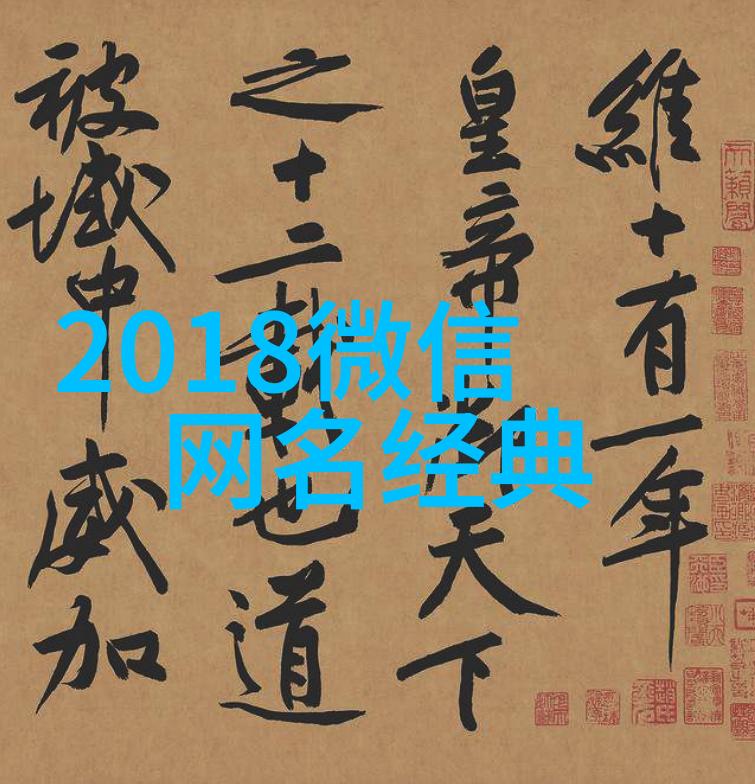 2018微信
网名经典
維十有一年
皇帝天下
之十二也道
被域中威加